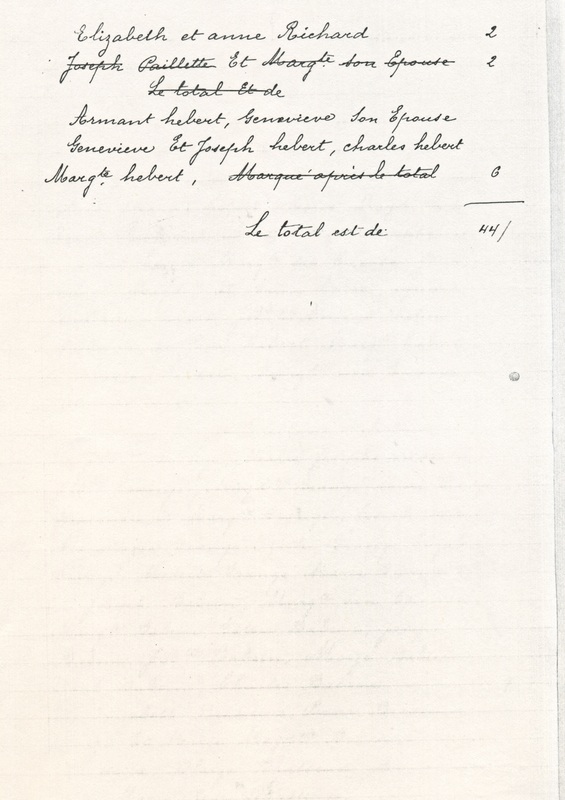 Elizabeth et anne Richard 2
Joseph Paillette Et Margte son Epouse 2
Le total Et de
Armant hebert, Genevieve Son Epouse
Genevieve Et Joseph hebert, charles hebert
Margte hebert, Marqué après le total 6
Le total est de 44/